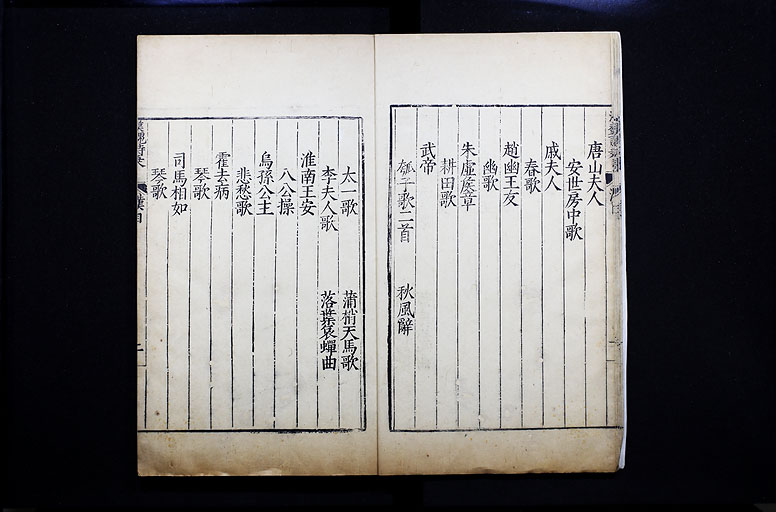 唐山夫人
安世房中歌
戚夫人
舂歌
趙幽王友
幽歌
朱虛侯章
耕田歌
武帝
瓠子歌二首 秋風辭
太一歌 蒲梢天馬歌
李夫人歌 落葉哀蟬曲
淮南王安
八公操
烏孫公主
悲愁歌
霍去病
琴歌
司馬相如
琴歌
漢目
二